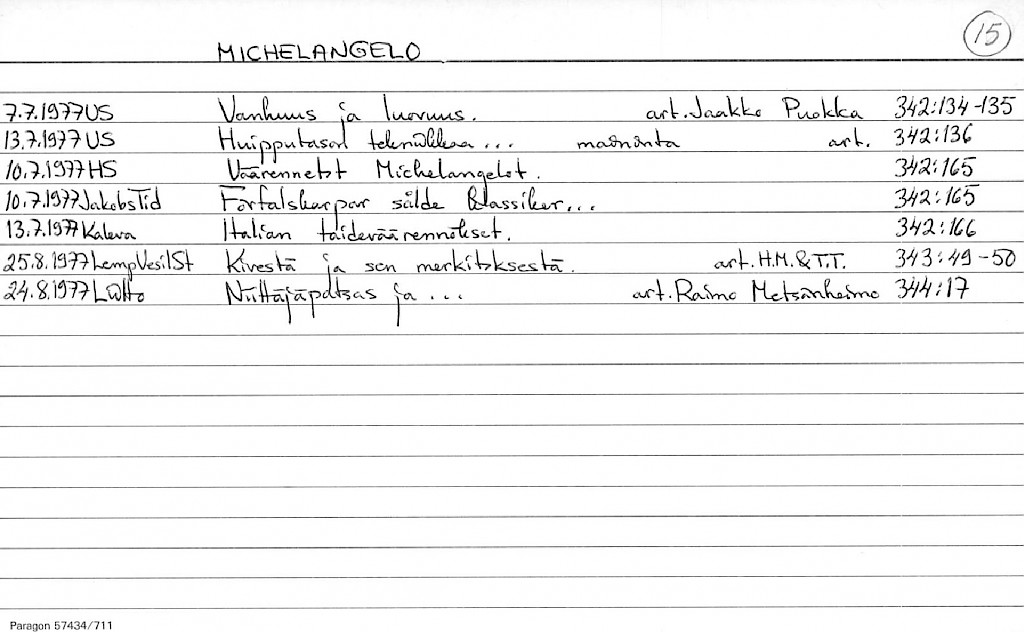 15
MICHELANGELO
7.7.1977 US Vanhuus ja luovuus. art. Jaakko Puokka 342:134-135
13.7.1977 US Huipputason tekniikkaa... mainonta art. 342:136
10.7.1977 HS Väärennetyt Michelangelot. 342:165
10.7.1977 JakobsTid Förfalskarpar sålde klassiker... 342:165
13.7.1977 Kaleva Italian taideväärennökset. 342:166
25.8.1977 LempVesilSt Kivestä ja sen merkityksestä. art. H.M. & T.T. 343:49-50
24.8.1977 Niittäjäpatsas ja... art. Raimo Metsänheimo 344:17
Paragon 57434/711